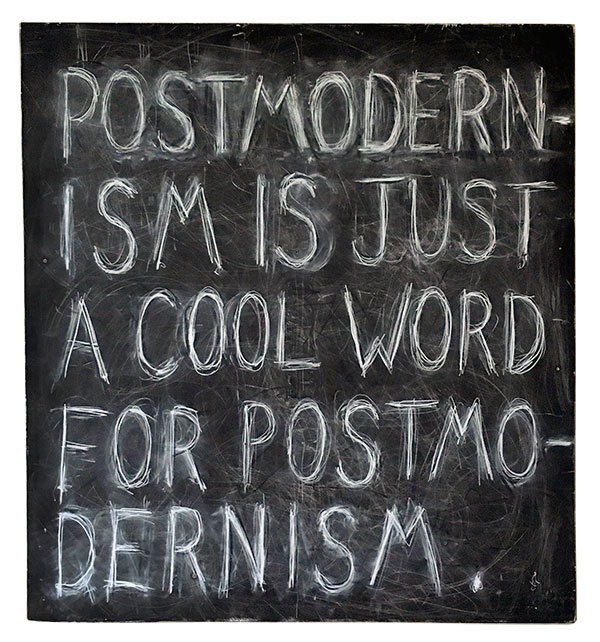 POSTMODERN-
ISM IS JUST
A COOL WORD
FOR POSTMO-
DERNISM.